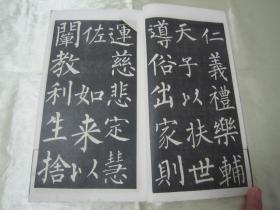 仁義禮樂輔
天子以扶世
導俗出家則
運慈悲定慧
佐如来以
闡教利生捨